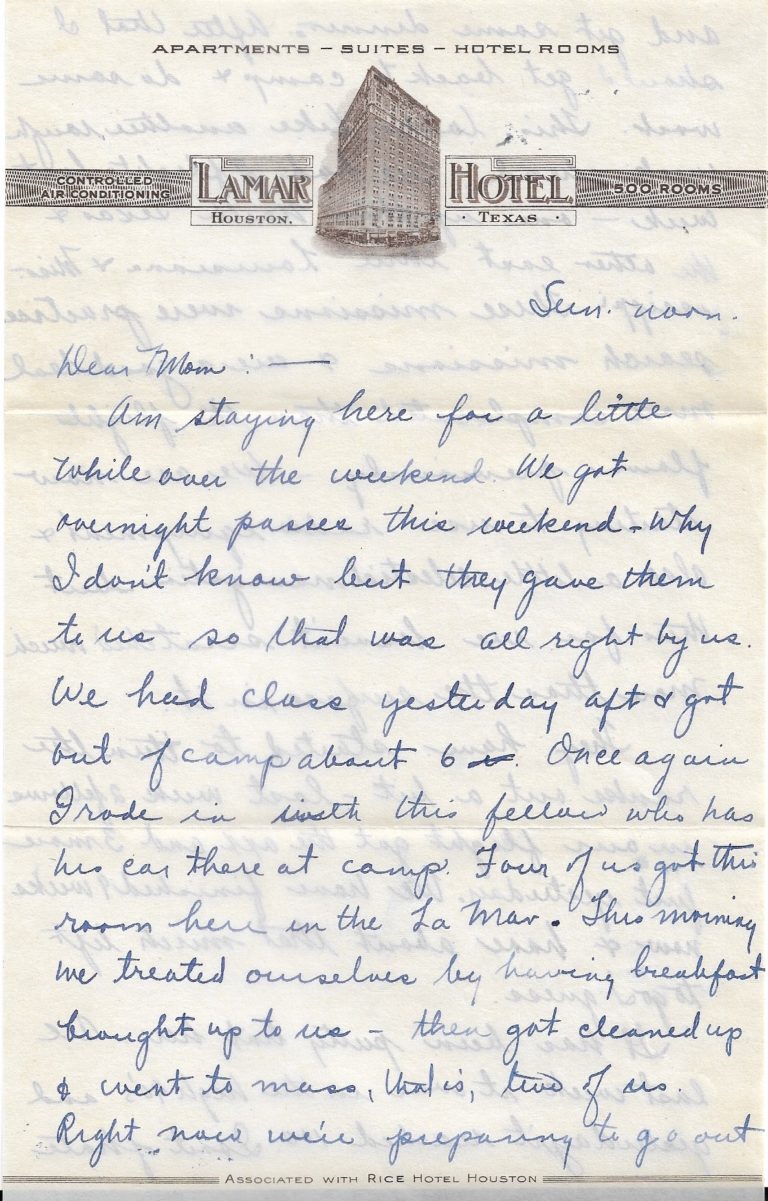 APARTMENTS – SUITES – HOTEL ROOMS
CONTROLLED
AIR CONDITIONING
LAMAR HOTEL
500 ROOMS
HOUSTON, TEXAS
Sun. noon.
Dear Mom: —
Am staying here for a little
while over the weekend. We got
overnight passes this weekend – Why
I don't know but they gave them
to us so that was all right by us.
We had class yesterday aft & got
out of camp about 6. Once again
I rode in with this fellow who has
his car there at camp. Four of us got this
room here in the La Mar. This morning
we treated ourselves by having breakfast
brought up to us – then got cleaned up
& went to mass, that is, two of us.
Right now we're preparing to go out
ASSOCIATED WITH RICE HOTEL HOUSTON